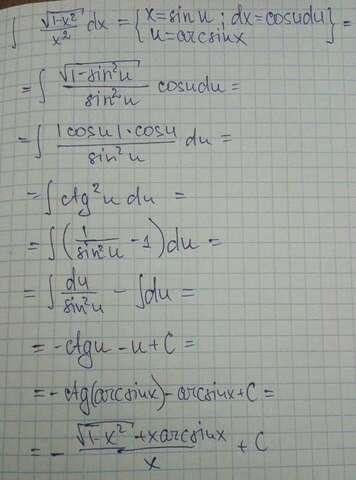 ∫ √(1-x²)/x² dx = { x = sin u ; dx = cosudu
u = arcsinx } =
= ∫ √(1-sin²u)/sin²u cosudu =
= ∫ |cosu|·cosu/sin²u du =
= ∫ctg²u du =
= ∫(1/sin²u - 1)du =
= ∫ du/sin²u - ∫du =
= -ctgu - u + C =
= -ctg(arcsinx) - arcsinx + C =
= - (√(1-x²) + xarcsinx)/x + C